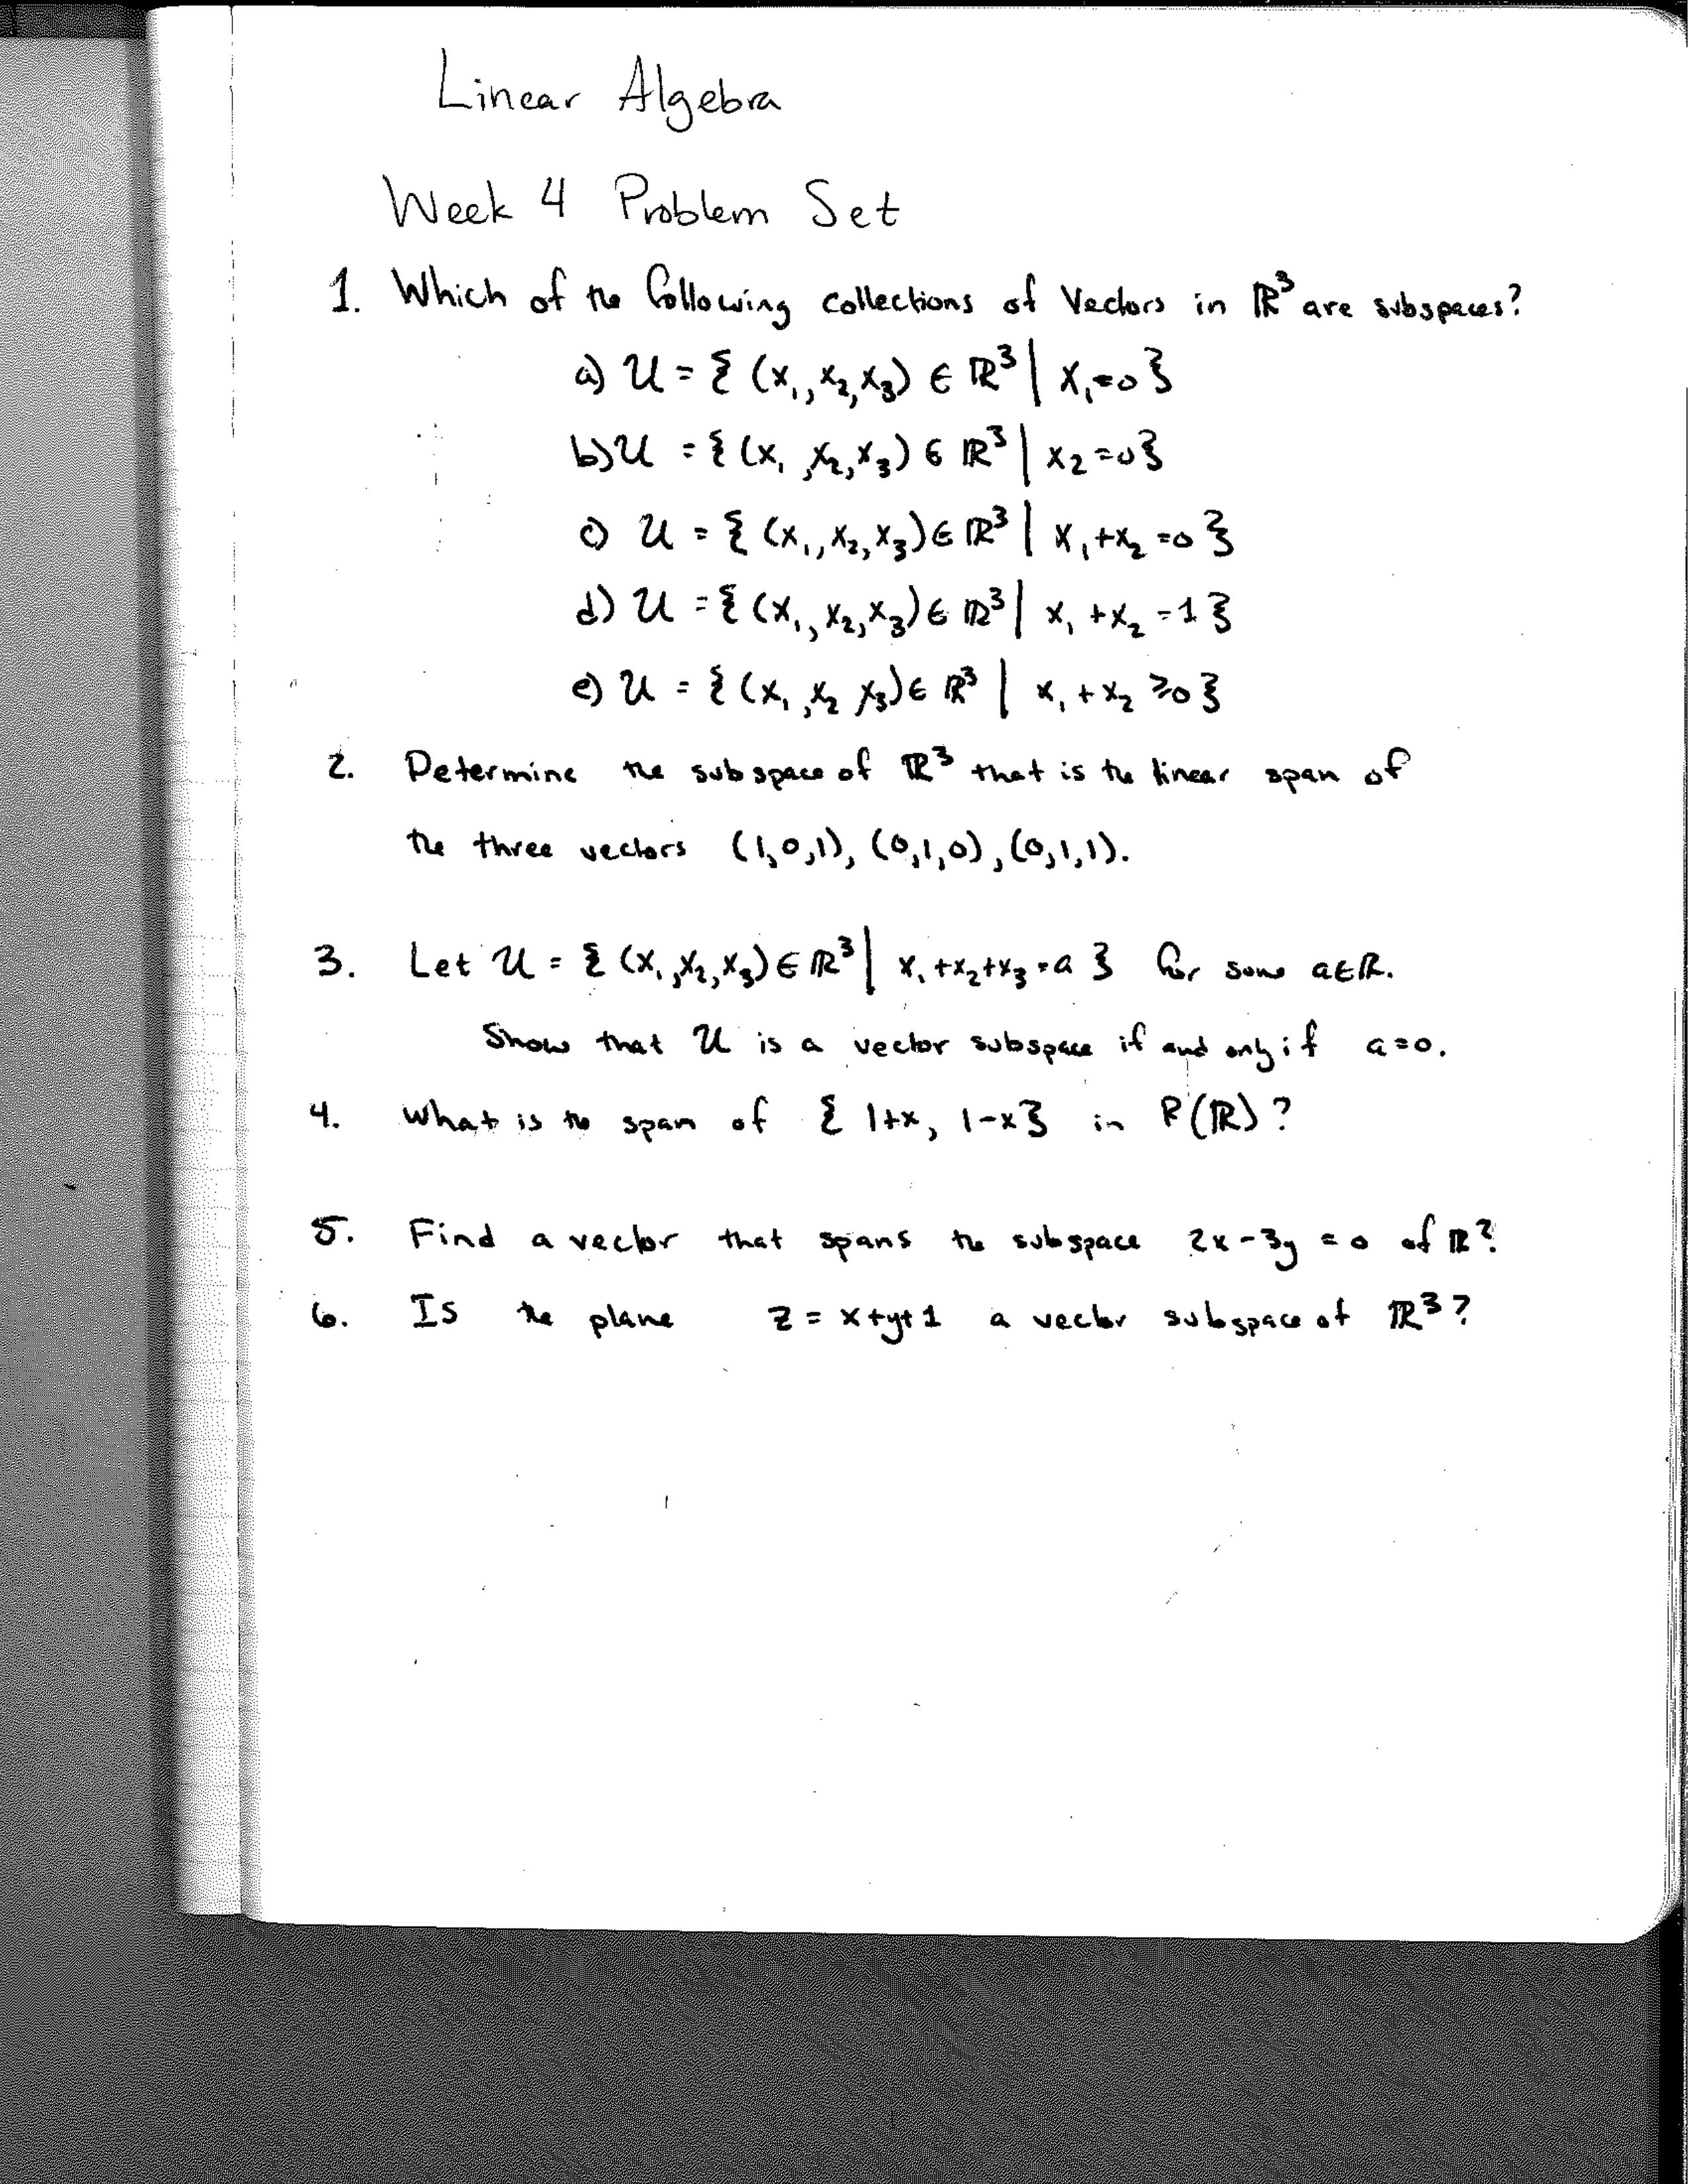 Linear Algebra
Week 4 Problem Set
1. Which of the following collections of Vectors in ℝ³ are subspaces?
a) U = { (x₁, x₂, x₃) ∈ ℝ³ | x₁=0 }
b) U = { (x₁, x₂, x₃) ∈ ℝ³ | x₂=0 }
c) U = { (x₁, x₂, x₃) ∈ ℝ³ | x₁+x₂=0 }
d) U = { (x₁, x₂, x₃) ∈ ℝ³ | x₁+x₂=1 }
e) U = { (x₁, x₂ x₃) ∈ ℝ³ | x₁+x₂ ≥0 }
2. Determine the subspace of ℝ³ that is the linear span of
the three vectors (1,0,1), (0,1,0), (0,1,1).
3. Let U = { (x₁, x₂, x₃) ∈ ℝ³ | x₁+x₂+x₃=a } for some a∈ℝ.
Show that U is a vector subspace if and only if a=0.
4. What is the span of { 1+x, 1-x } in P(ℝ)?
5. Find a vector that spans the subspace 2x-3y=0 of ℝ².
6. Is the plane z = x+y+1 a vector subspace of ℝ³?